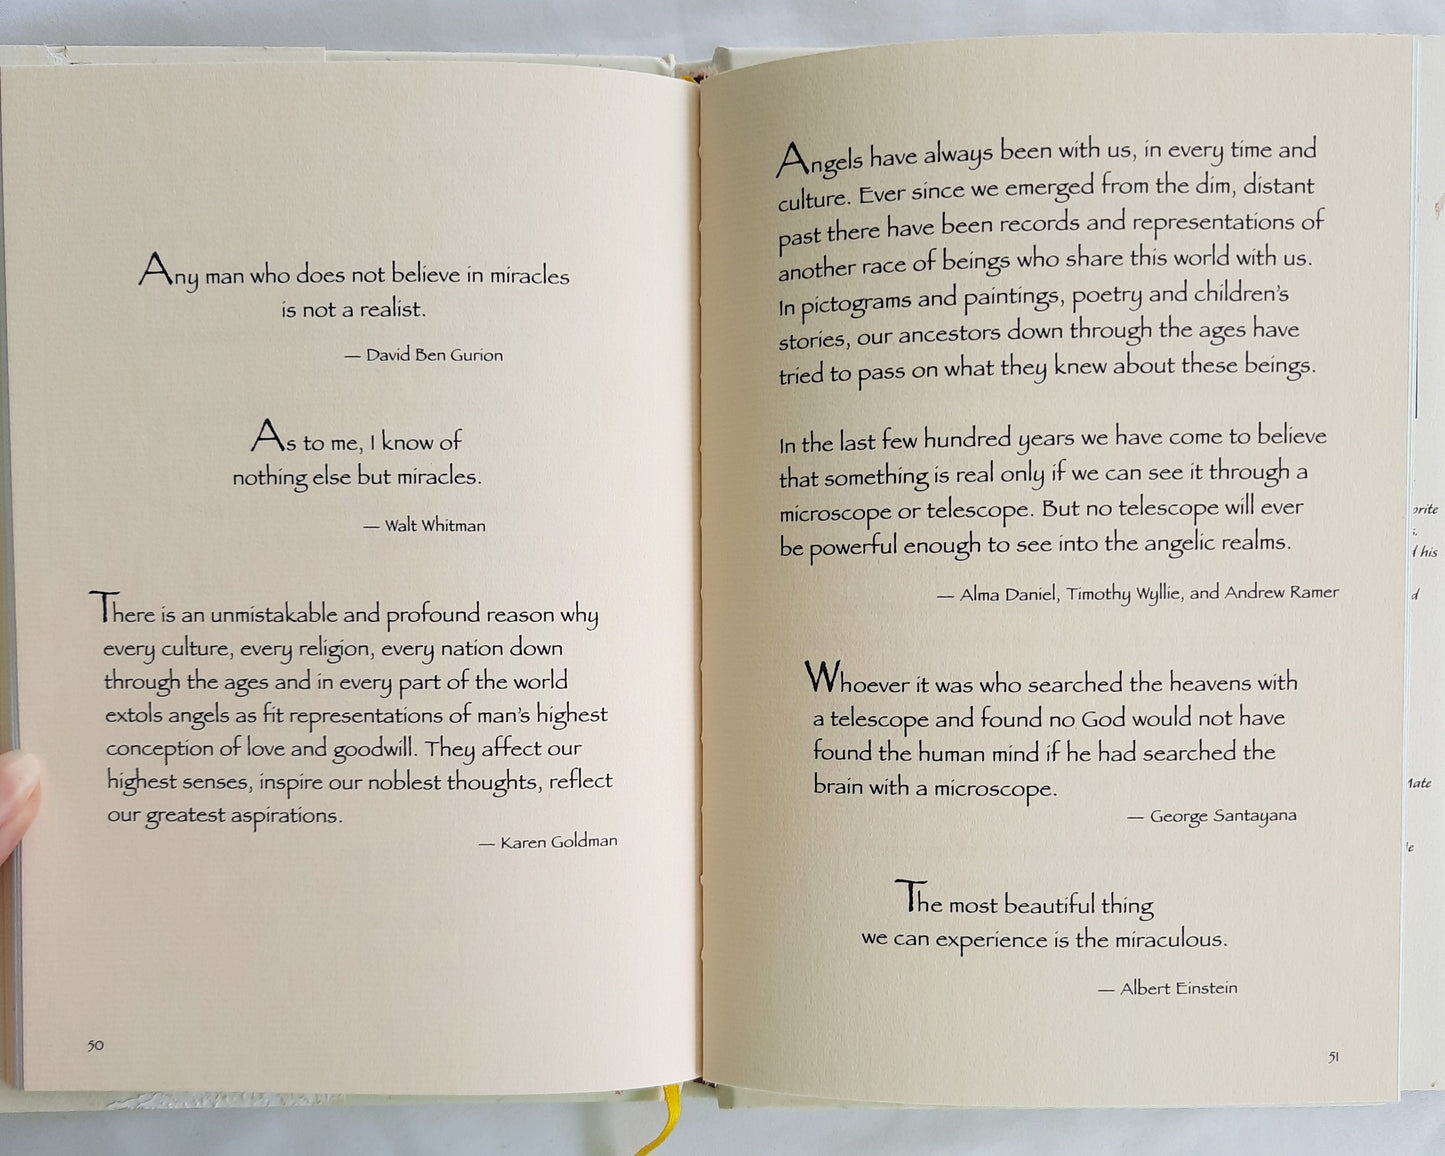 Any man who does not believe in miracles
is not a realist.
— David Ben Gurion
As to me, I know of
nothing else but miracles.
— Walt Whitman
There is an unmistakable and profound reason why
every culture, every religion, every nation down
through the ages and in every part of the world
extols angels as fit representations of man's highest
conception of love and goodwill. They affect our
highest senses, inspire our noblest thoughts, reflect
our greatest aspirations.
— Karen Goldman
50
Angels have always been with us, in every time and
culture. Ever since we emerged from the dim, distant
past there have been records and representations of
another race of beings who share this world with us.
In pictograms and paintings, poetry and children's
stories, our ancestors down through the ages have
tried to pass on what they knew about these beings.
In the last few hundred years we have come to believe
that something is real only if we can see it through a
microscope or telescope. But no telescope will ever
be powerful enough to see into the angelic realms.
— Alma Daniel, Timothy Wyllie, and Andrew Ramer
Whoever it was who searched the heavens with
a telescope and found no God would not have
found the human mind if he had searched the
brain with a microscope.
— George Santayana
The most beautiful thing
we can experience is the miraculous.
— Albert Einstein
51
his